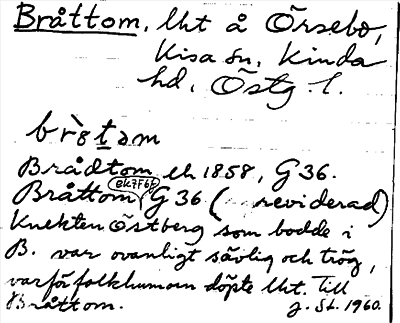 Bråttom, lht å Örsebo,
Kisa sn, Kinda
hd, Östg. l.
Brådtom ek 1858, G 36.
Bråttom (ek 7F6f) G 36 (reviderad)
Knekten Östberg som bodde i
B. var ovanligt sävlig och trög,
varför folkhumorn döpte lht. till
Bråttom.
J. St. 1960.